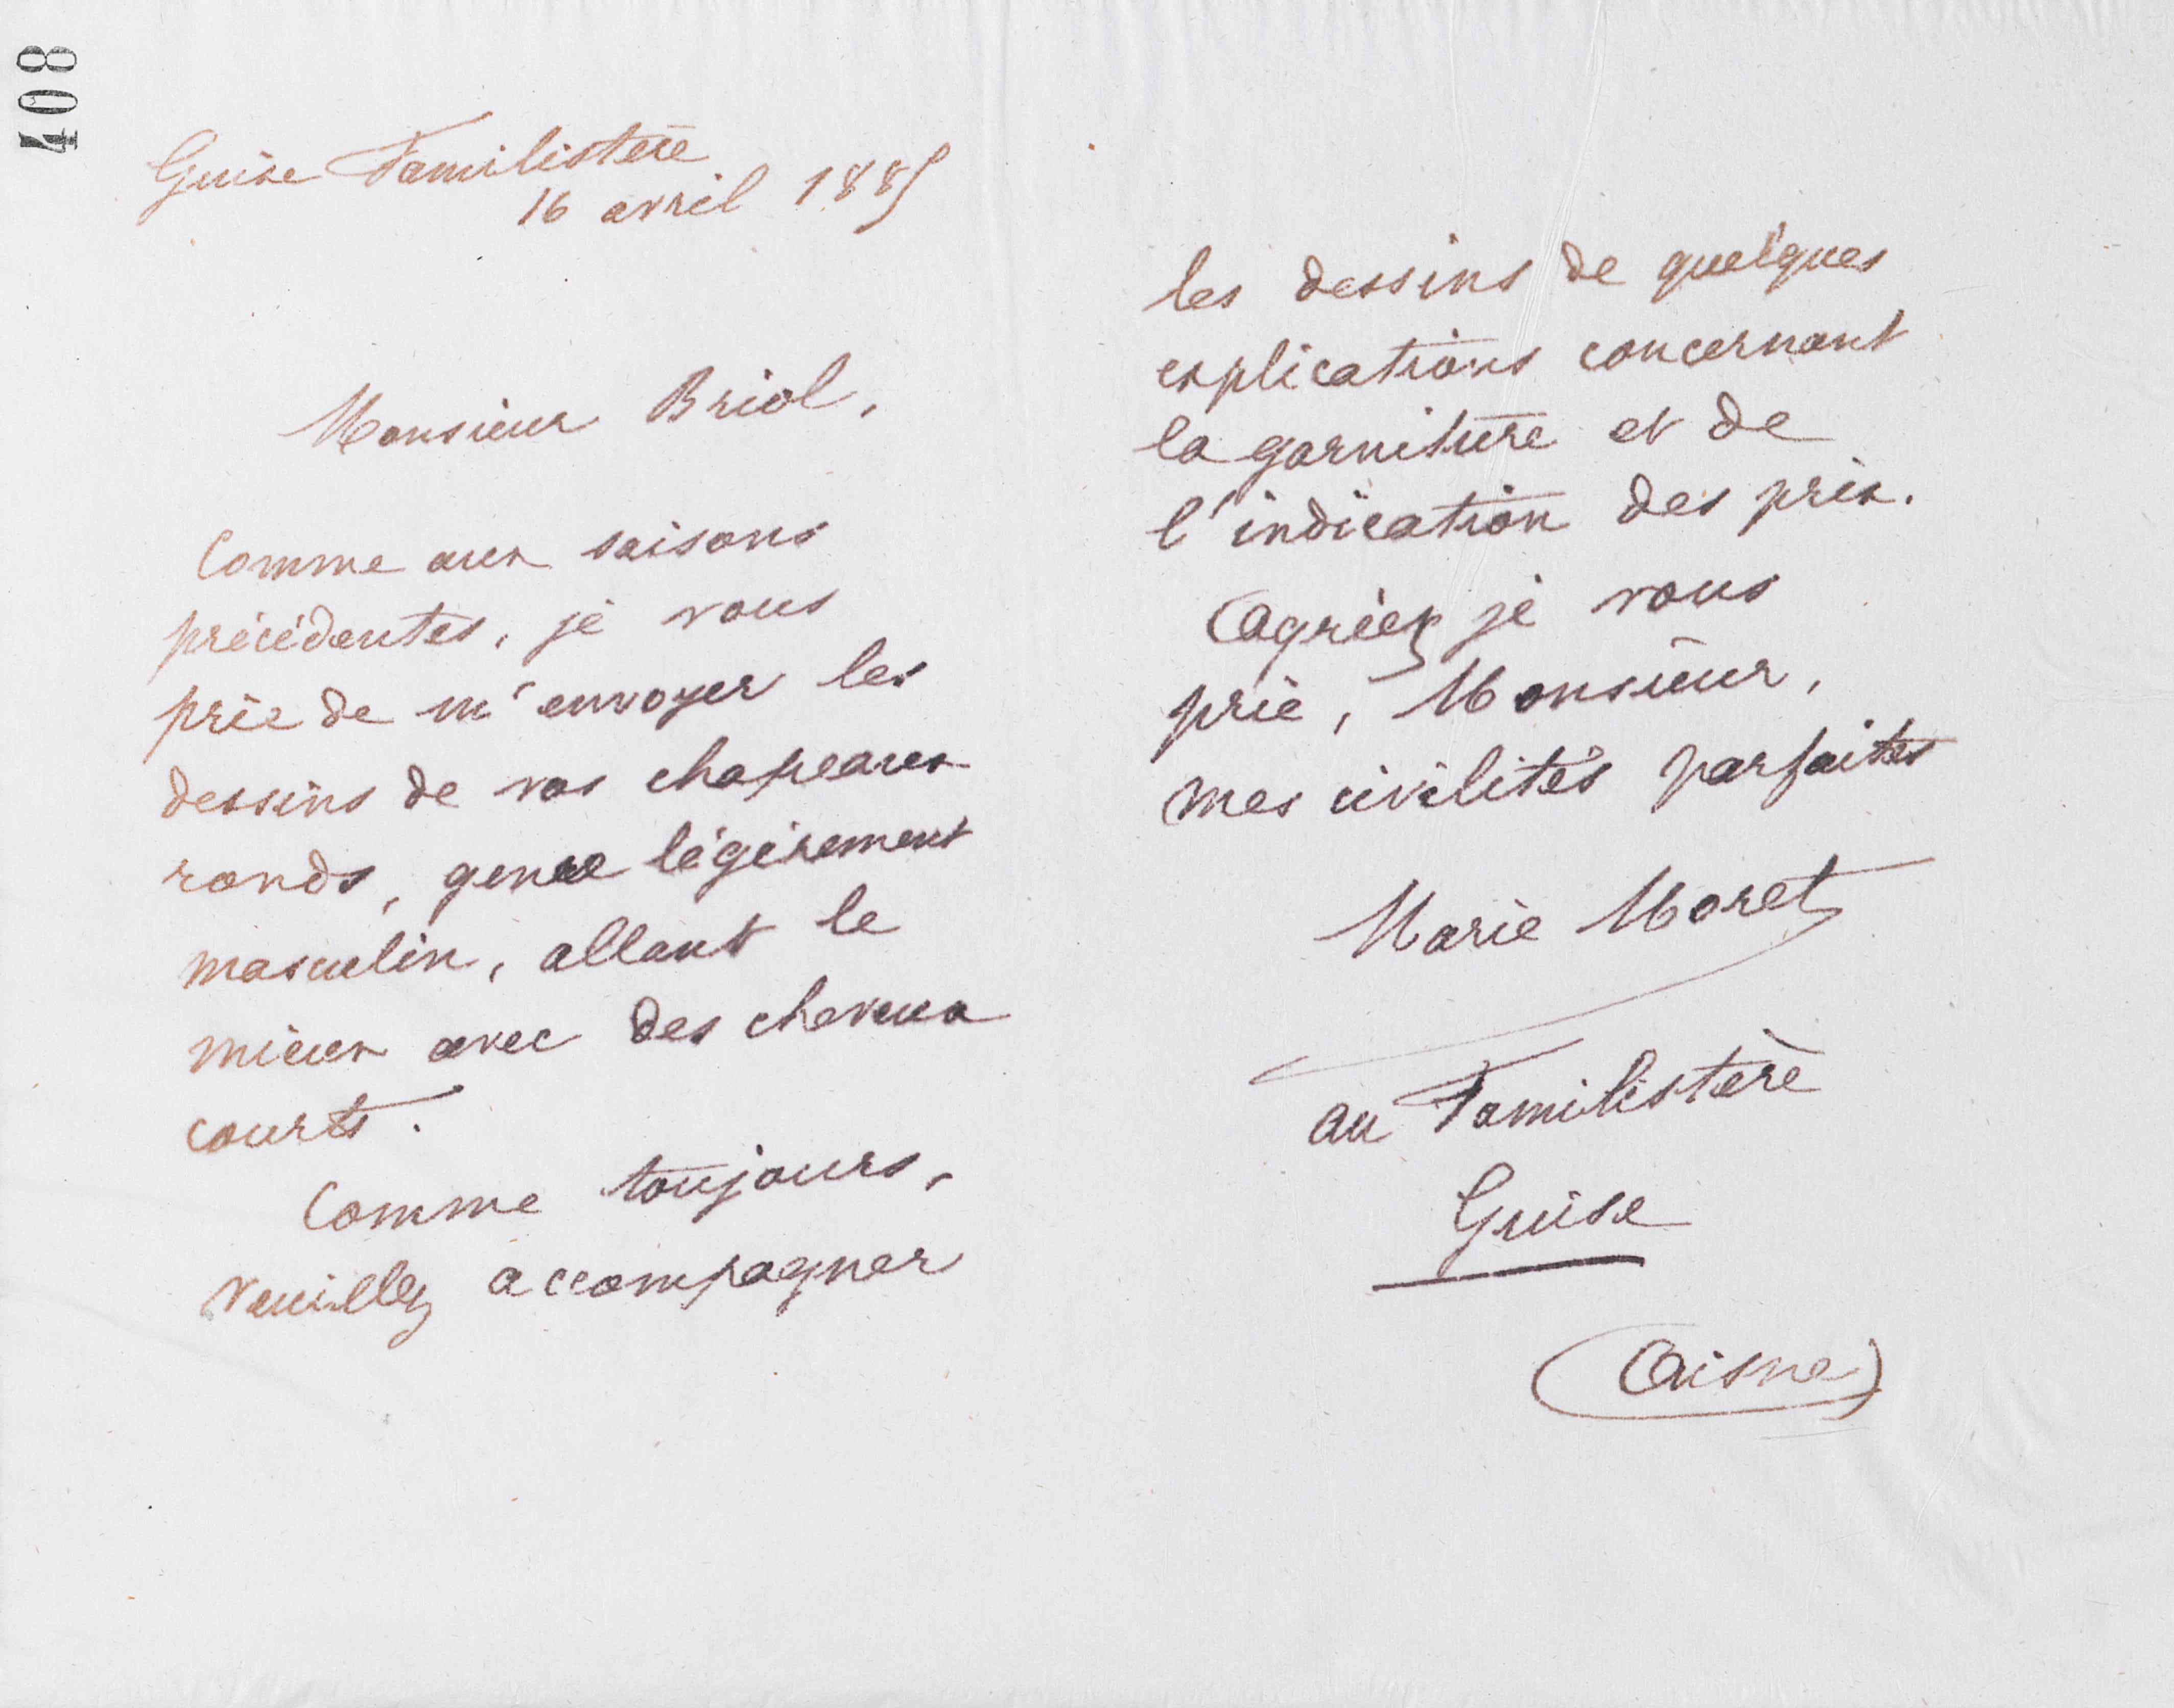 408
Guise Familistère
16 avril 1885
Monsieur Briol,
Comme aux saisons
précédentes, je vous
prie de m'envoyer les
dessins de vos chapeaux
ronds, genre légèrement
masculin, allant le
mieux avec des cheveux
courts.
Comme toujours,
veuillez accompagner
les dessins de quelques
explications concernant
la garniture et de
l'indication des prix.
Agréez je vous
prie, Monsieur,
mes civilités parfaites
Marie Moret
au Familistère
Guise
(Aisne)